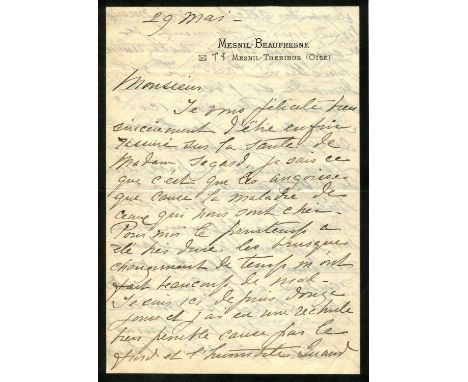 29 Mai -
MESNIL-BEAUFRESNE
MESNIL-THERIBUS (OISE)
Monsieur
Je vous félicite bien
sincerement d'être enfin
rassuré sur la santé de
Madame Segard, je sais ce
que c'est que les angoisses
que cause la maladie de
ceux qui nous sont cher -
Pour moi le printemps a
été très dure les brusques
changement de temps m'ont
fait beaucoup de mal -
Je suis ici depuis douze
jours et j'ai eu une rechute
bien penible cause par le
froid et l'humidite Quand